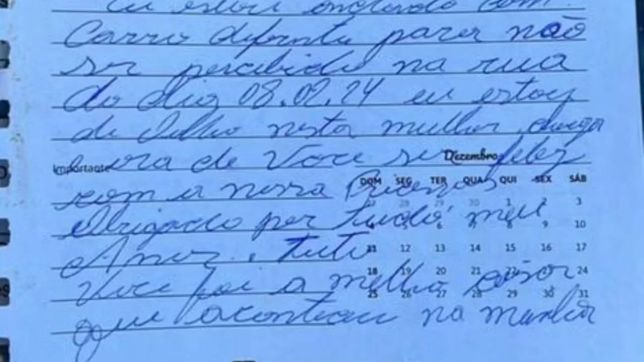 Eu estou andando com
Carro diferente para não
ser percebido na rua
do dia 08.02.24 eu estou
de olho nesta mulher, chega
hora de Você ser feliz
Importante
Dezembro
DOM SEG TER QUA QUI SEX SÁB
com a nossa Princesa
27 28 29 30 1 2 3
Obrigado por tudo meu
4 5 6 7 8 9 10
Amor, tudo
11 12 13 14 15 16 17
Você foi a melhor coisa
18 19 20 21 22 23 24
25 26 27 28 29 30 31
que aconteceu na minha